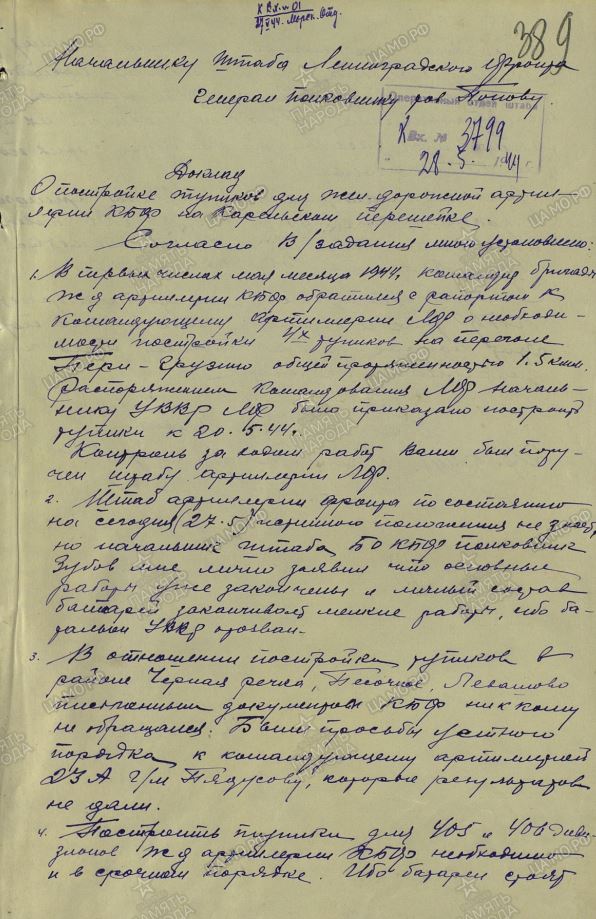 К вх. № 01
V 44. Морск. Отд.
389
Начальнику штаба Ленинградского Фронта
Генерал полковнику тов Попову.
Оперативный отдел штаба
Вх. № 3799
28. 5. 1944 г.
Доклад
О постройке тупиков для жел-дорожной артил-
лерии КБФ на Карельском перешейке.
Согласно В/задания мною установлено:
1. В первых числах мая месяца 1944, командир бригады
жд артиллерии КБФ обратился с рапортом к
командующему артиллерии ЛФ о необходи-
мости постройки 4х тупиков на перегоне
Пери - Грузино общей протяженностью 1.5 клм.
Распоряжением Командования ЛФ началь-
нику УВВР ЛФ было приказано построить
тупики к 20.5.44.
Контроль за ходом работ Вами был пору-
чен штабу артиллерии ЛФ.
2. Штаб артиллерии фронта по состоянию
на сегодня (27.5) истинного положения не знает,
но начальник штаба БО КБФ полковник
Зубов мне лично заявил что основные
работы уже закончены и личный состав
батарей заканчивает мелкие работы, ибо ба-
тальон отозван.
3. В отношении постройки тупиков в
районе Черная речка, Песочное, Левашово
письменным документом КБФ ни к кому
не обращался. Были просьбы устного
порядка к командующему артиллерией
23 А г/м Пядусову, которые результатов
не дали.
4. Построить тупики для 405 и 406 диви-
зионов жд артиллерии КБФ необходимо
и в срочном порядке. Ибо батареи стоят
ПАМЯТЬ НАРОДА
ЦАМО.РФ